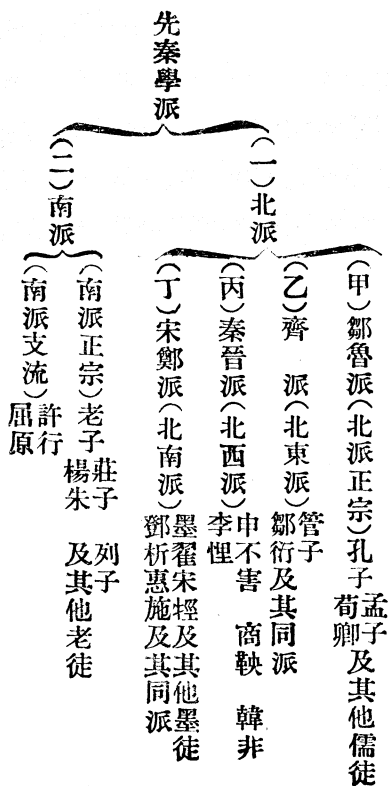 先秦學派
（一）北派
（甲）鄒魯派（北派正宗）孔子
孟子
荀卿
及其他儒徒
（乙）齊　派（北東派）
管子
鄒衍及其同派
（丙）秦晉派（北西派）
申不害　商鞅　韓非
李悝
（丁）宋鄭派（北南派）
墨翟宋牼及其他墨徒
鄧析惠施及其同派
（二）南派
（南派正宗）老子
莊子　列子
楊朱　及其他老徒
（南派支流）
許行
屈原